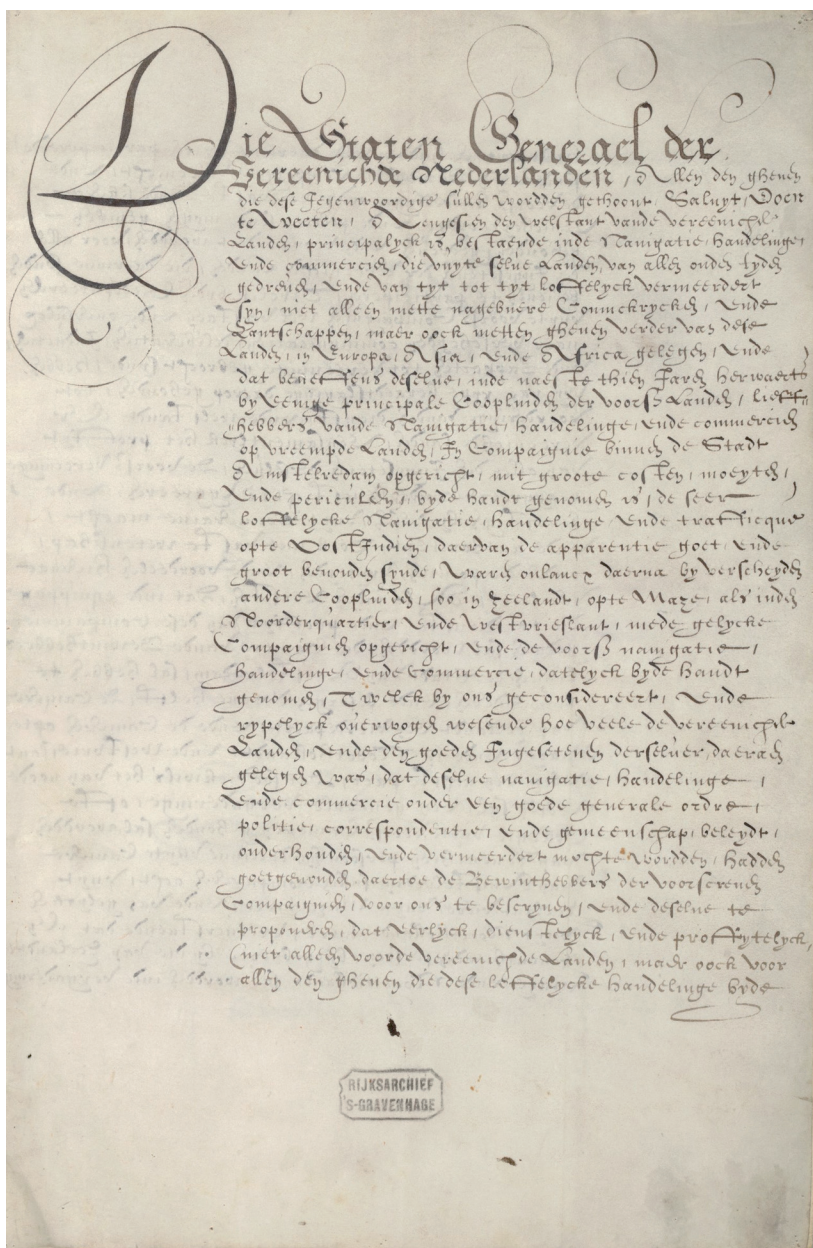 Die Staten Generael der
Vereenichde Nederlanden, Allen den ghenen
die dese Jegenwoordige sullen wordden gethoont, Saluyt, Doen
te Weeten, Alzoegesien den welstant vande vereenichde
Landen, principalyck is bestaende inde Navigatie, handelinge,
Ende commercien, die vuyte selve Landen, van allen ouden tyden
gedreven, Ende van tyt tot tyt loffelyck vermeerdert
syn, niet alleen mette nagebuere Coninckrycken, Ende
Lantschappen, maer oock metten ghenen verder van dese
Landen, in Europa, Asia, Ende Africa gelegen, Ende
dat beneffens deselve, inde naeste thien Jaren herwaerts
by Eenige principale Coopluiden der voorsz Landen, lieff-
hebbers vande Navigatie, handelinge, Ende commercien
op vreempde Landen, In Compaignie binnen de Stadt
Amstelredam opgericht, mit groote costen, moeyten,
Ende periculen, byde handt genomen is, de seer
loffelycke Navigatie, handelinge Ende trafficque
opte Oost Indien, daervan de apparentie goet, Ende
groot bevonden synde, Waren onlancx daerna by verscheyden
andere Coopluiden, soo in Zeelandt, opte Maze, als inden
Noorderquartier, Ende Westvrieslant, mede gelycke
Compaignien opgericht, Ende de voorsz navigatie,
handelinge, Ende Commercie, datelyck byde handt
genomen, Twelck by ons geconsidereert, Ende
rypelyck overwogen wesende hoe veele de vereenichde
Landen, Ende den goeden Ingesetenen derselver daeraen
gelegen was, dat deselve navigatie, handelinge,
Ende commercie onder een goede generale ordre,
politie, correspondentie, Ende gemeenschap, beleydt,
onderhouden, Ende vermeerdert mochte wordden, hadden
goetgevonden daertoe de Bewinthebbers der voorscreven
Compaignien, voor ons te bescryven, Ende deselve te
proponeren, dat eerlyck, dienstelyck, Ende proffytelyck,
(niet alleen voorde vereenichde Landen, maer oock voor
allen den ghenen die dese loffelycke handelinge byde
RIJKSARCHIEF
'S-GRAVENHAGE